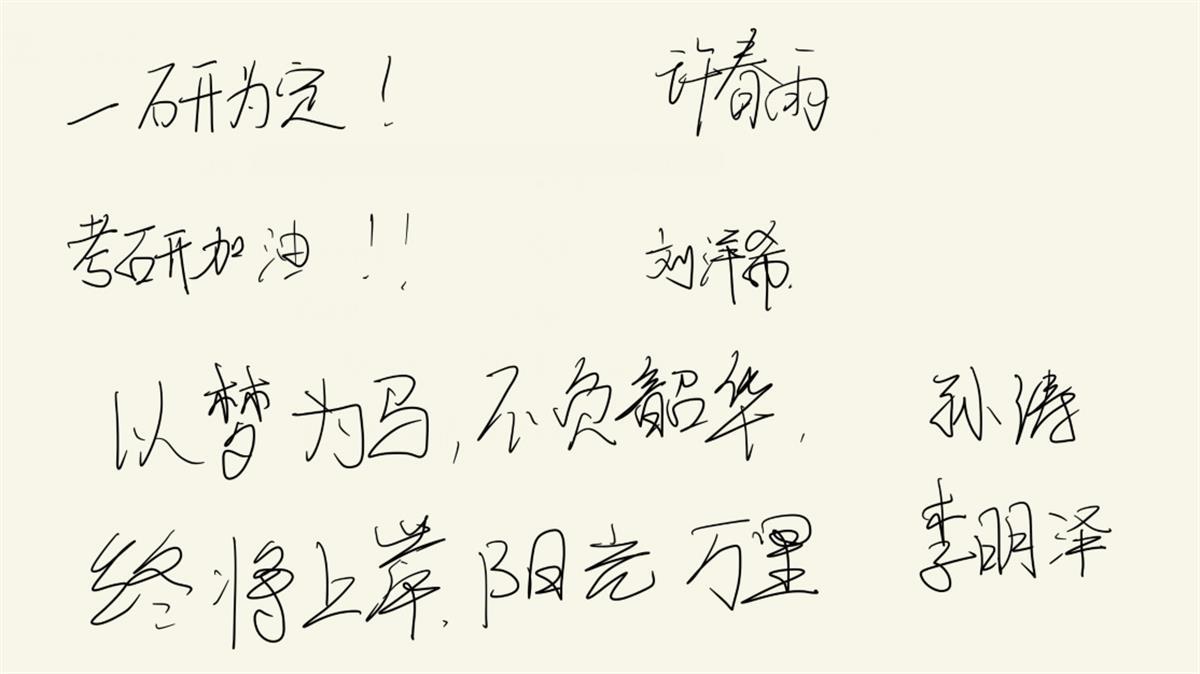 一研为定! 许春雨
考研加油!! 刘洋希.
以梦为马,不负韶华, 孙涛
终将上岸,阳光万里 李明泽